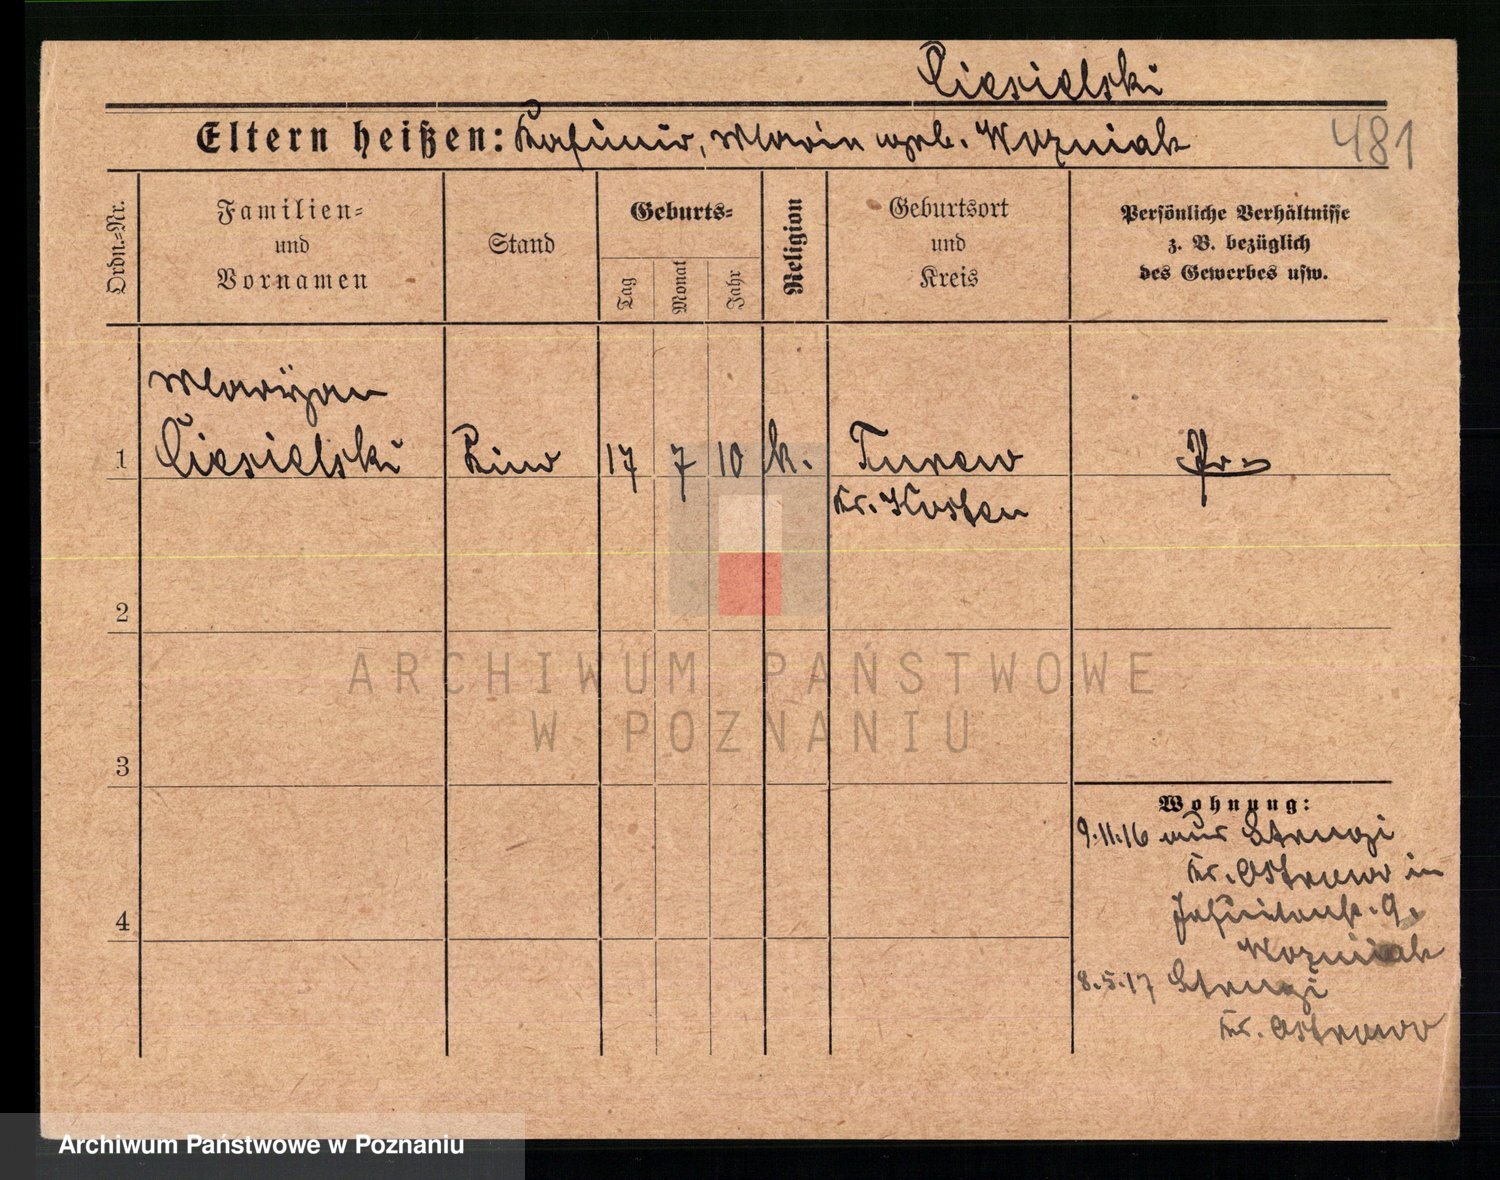 Ciesielski
Eltern heißen: Kasimir, Maria geb. Wozniak 481
Ordn.-Nr.
Familien-
und
Vornamen
Stand
Geburts-
Tag
Monat
Jahr
Religion
Geburtsort
und
Kreis
Persönliche Verhältnisse
z. B. bezüglich
des Gewerbes usw.
Maryan
1 Ciesielski Kind 17 7 10 k. Turew Pr.
Kr. Kosten
2
3
4
Wohnung:
9.11.16 aus
Kr. Ostrowo in
Jesuitenstr. 9.
Wozniak
8.5.17
Kr. Ostrowo
ARCHIWUM PAŃSTWOWE
W POZNANIU
Archiwum Państwowe w Poznaniu